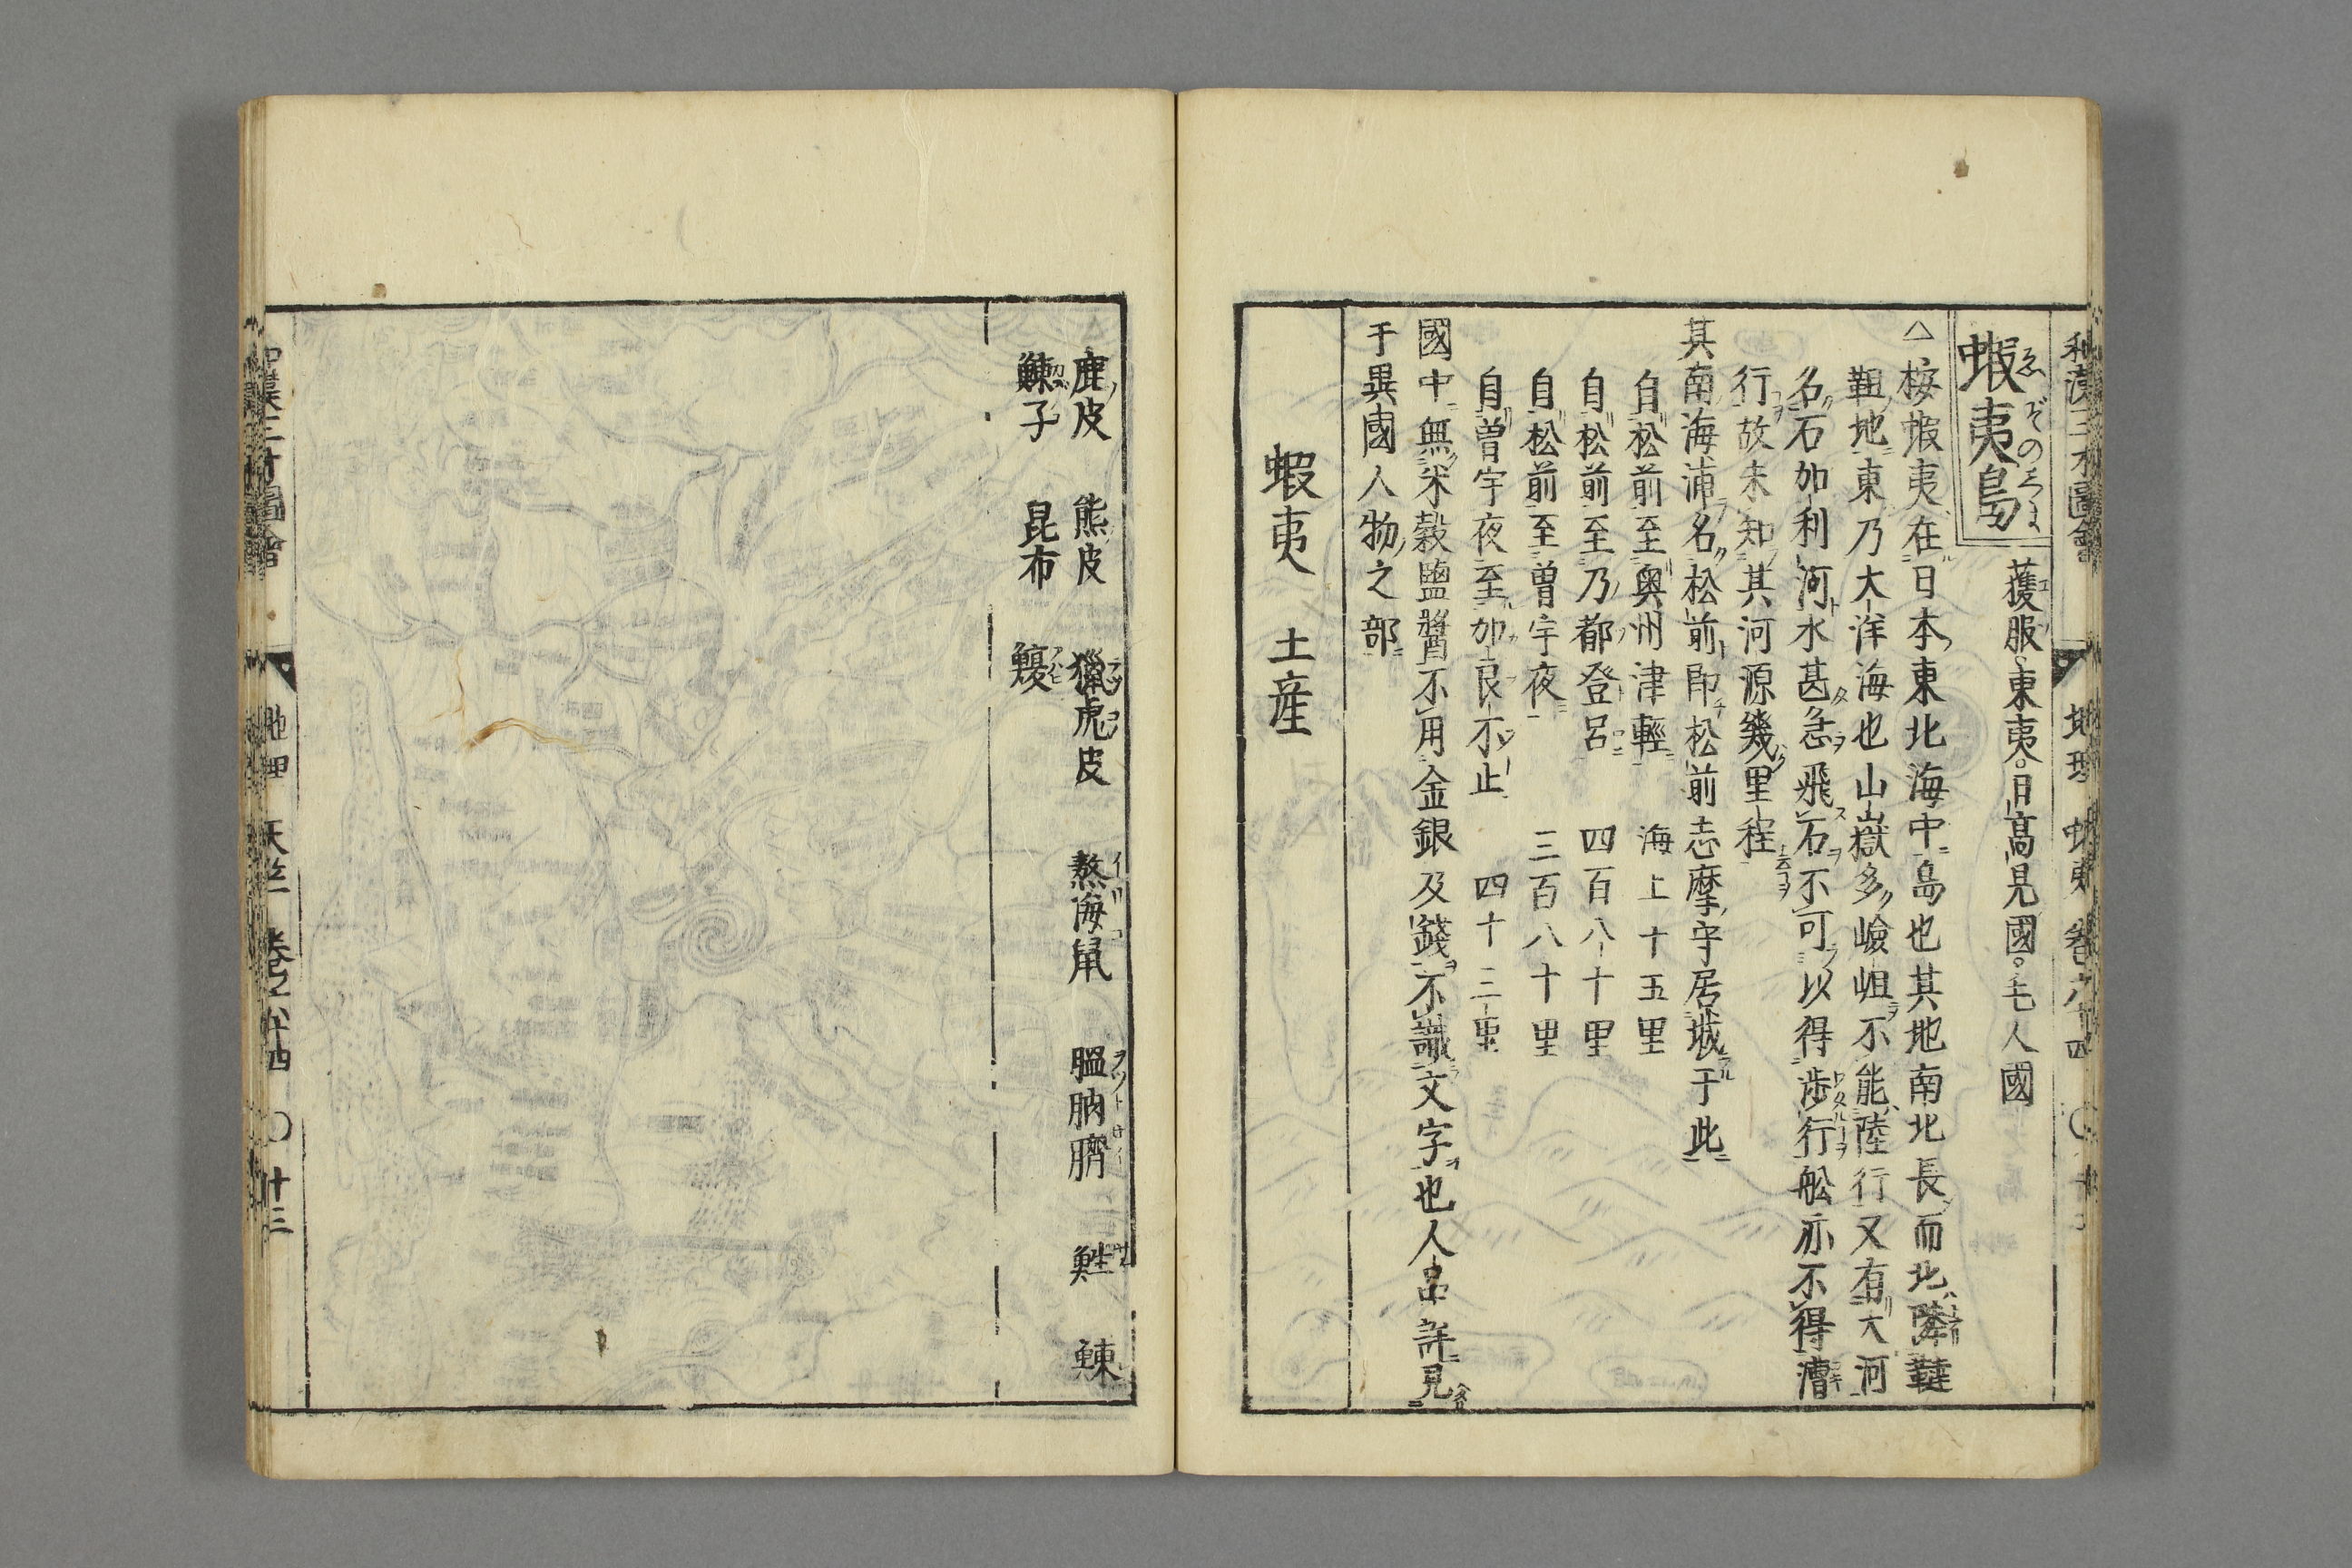 和漢三才圖會 地理 卷六十四
蝦夷島 獲服。東夷。日高見國。毛人國
△按蝦夷在日本東北海中島也其地南北長而北隣韃
靼地東乃大洋海也山嶽多嶮岨不能陸行又有大河
名石加利河水甚急飛石不可以得渉行舩亦不得漕
行故未知其河源幾里程
其南海浦名松前卽松前志摩守居城于此
自松前至奧州津輕 海上十五里
自松前至乃都登呂 四百八十里
自松前至曽宇夜 三百八十里
自曽宇夜至加良不止 四十三里
國中無米穀鹽醬不用金銀及錢不識文字也人品詳見
于異國人物之部
蝦夷 土産
鹿皮 熊皮 獵虎皮 熬海鼠 膃肭臍 鮏 鰊
鰊子 昆布 鰒
和漢三才圖會 地理 天竺 卷之六十四 〇 廿三